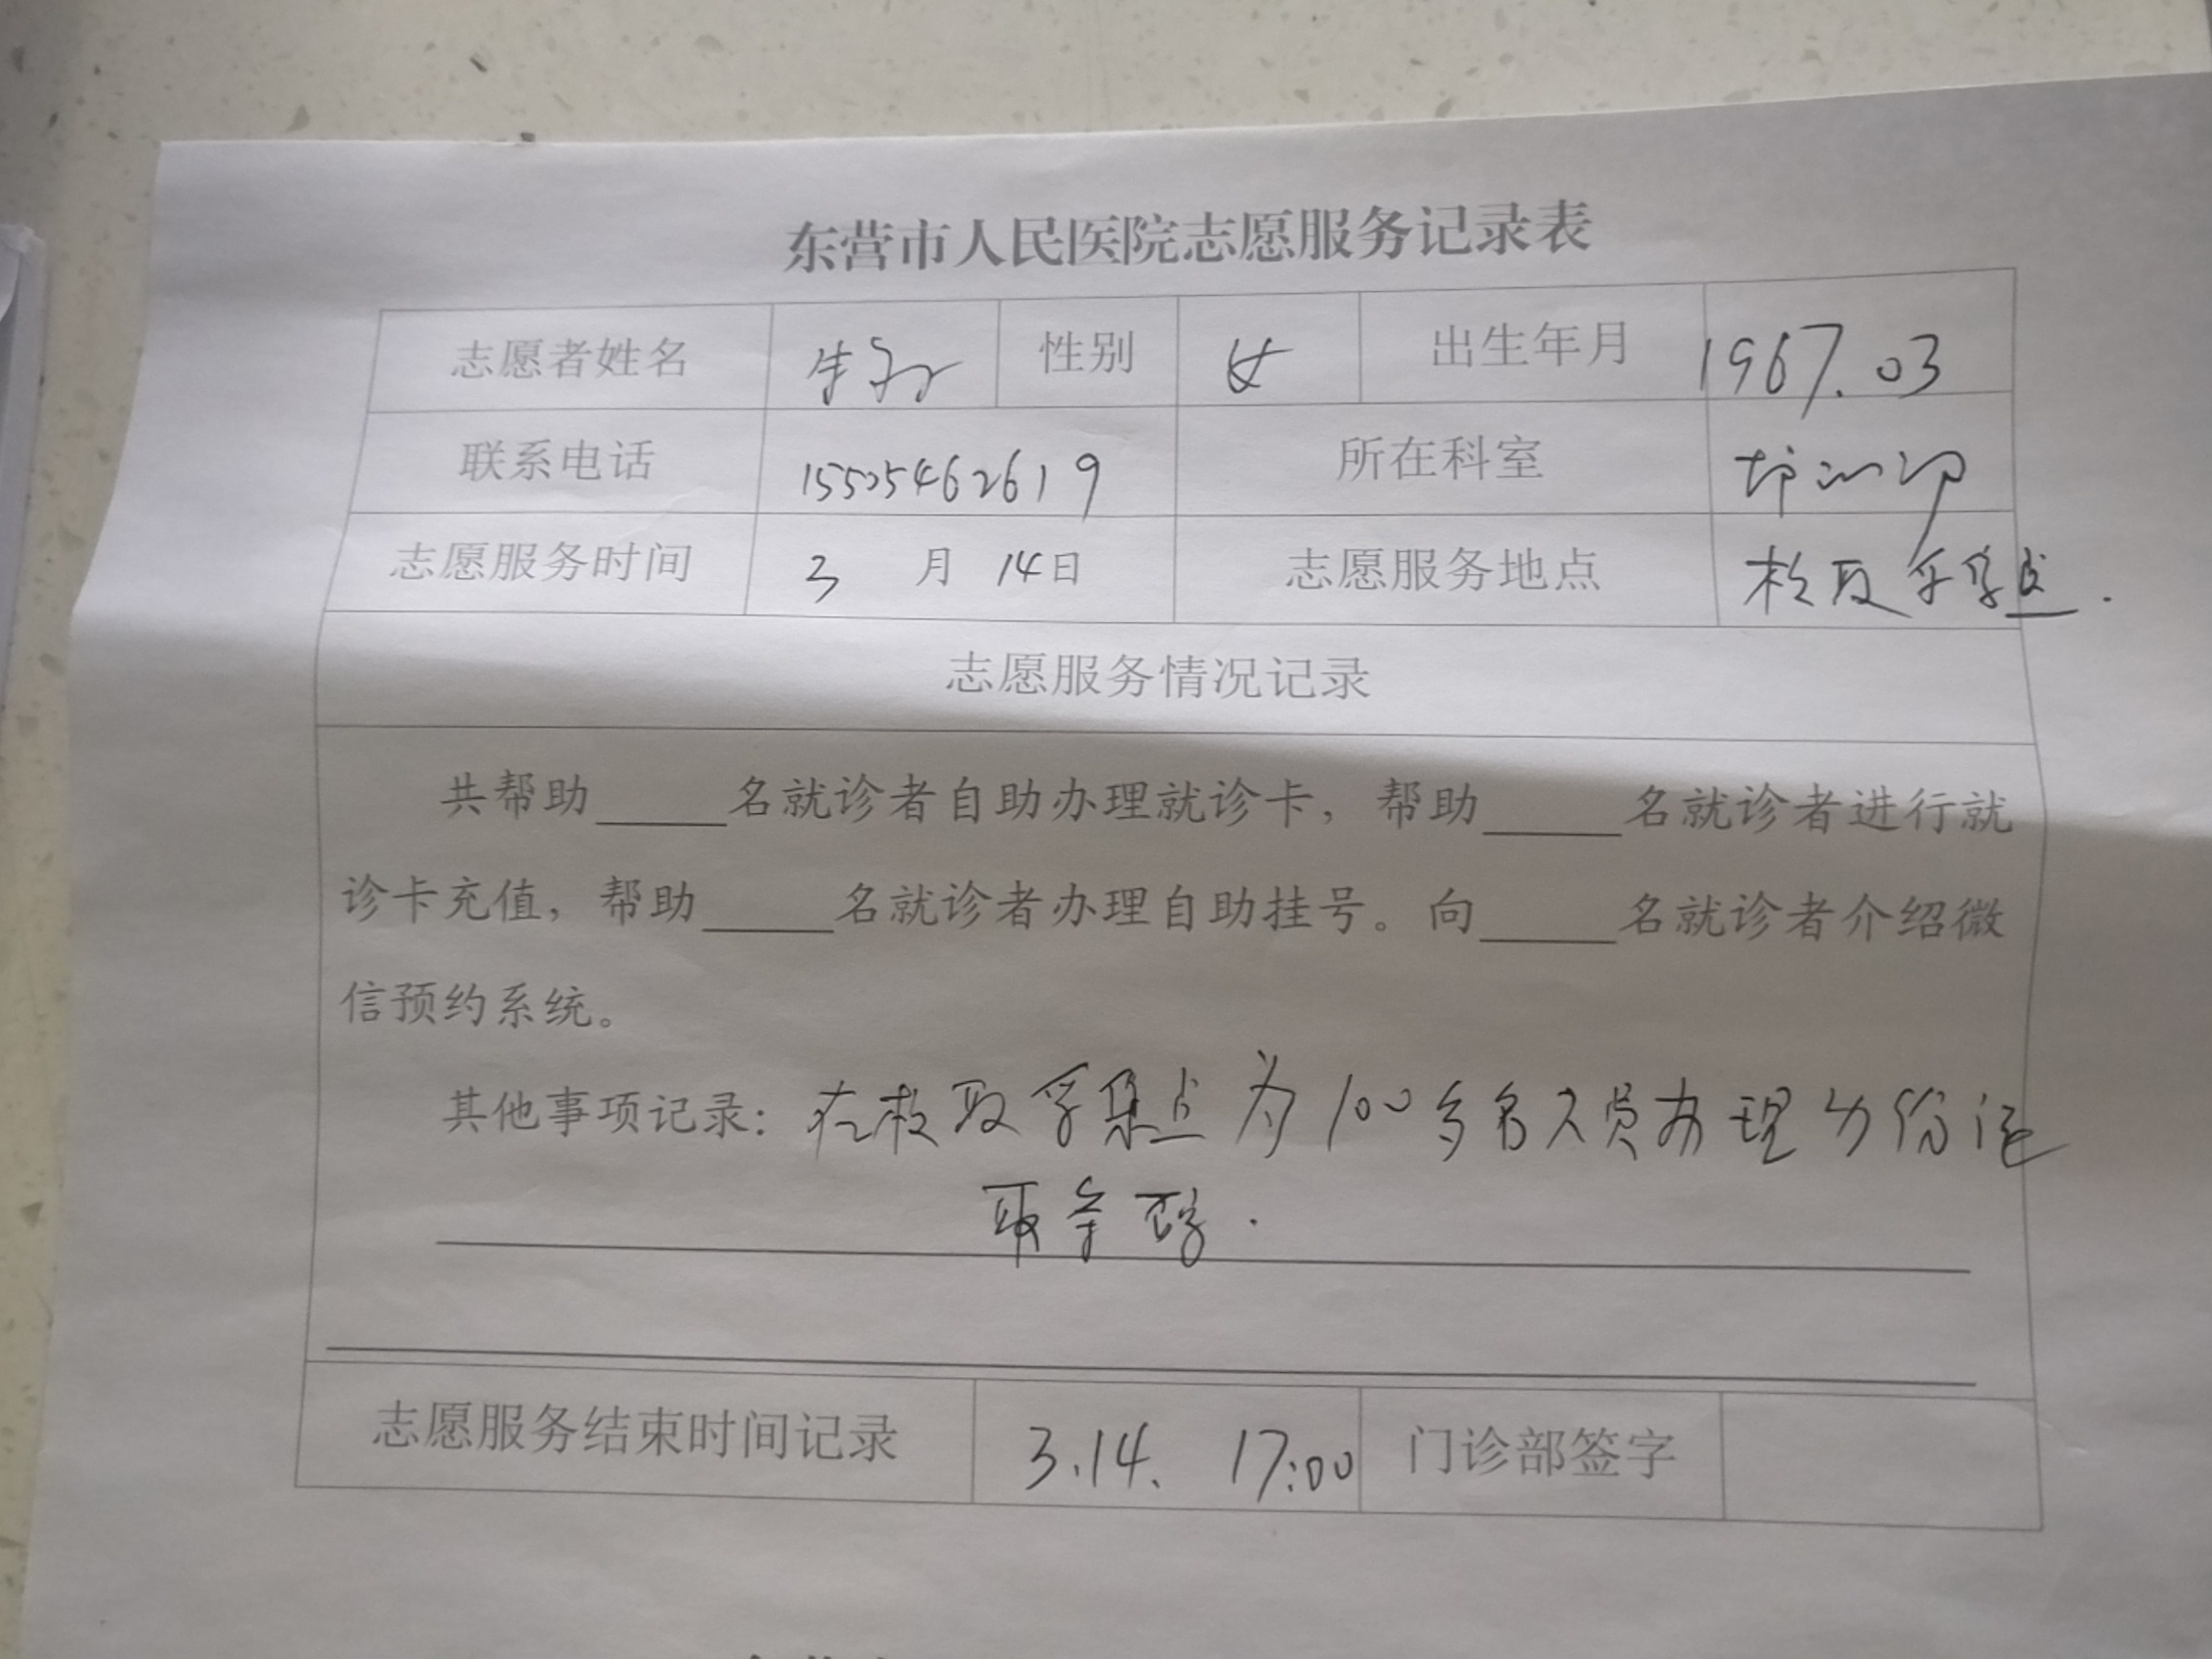 东营市人民医院志愿服务记录表
志愿者姓名 牛 性别 女 出生年月 1967.03
联系电话 15505462619 所在科室 培训部
志愿服务时间 3 月 14日 志愿服务地点 核酸采集点.
志愿服务情况记录
共帮助_____名就诊者自助办理就诊卡，帮助_____名就诊者进行就
诊卡充值，帮助_____名就诊者办理自助挂号。向_____名就诊者介绍微
信预约系统。
其他事项记录：在核酸采集点为100多名人员办理身份证
取条码.
志愿服务结束时间记录 3.14. 17:00 门诊部签字